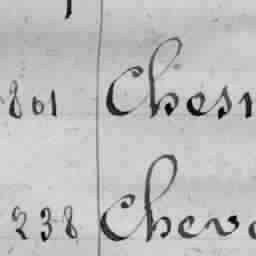 801 Chesn
238 Cheve